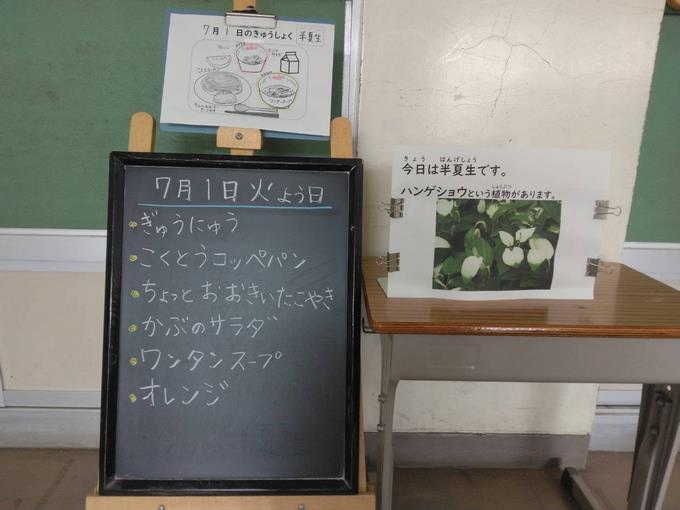 7月1日のきゅうしょく 半夏生
7月1日火よう日
ぎゅうにゅう
こくとうコッペパン
ちょっとおおきいたこやき
かぶのサラダ
ワンタンスープ
オレンジ
きょう はんげしょう
今日は半夏生です。
しょくぶつ
ハンゲショウという植物があります。